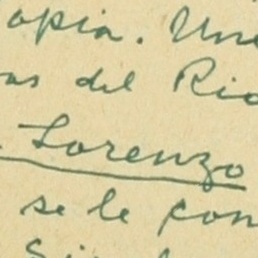 opia. Une
as del Rio
Lorenzo
se le con